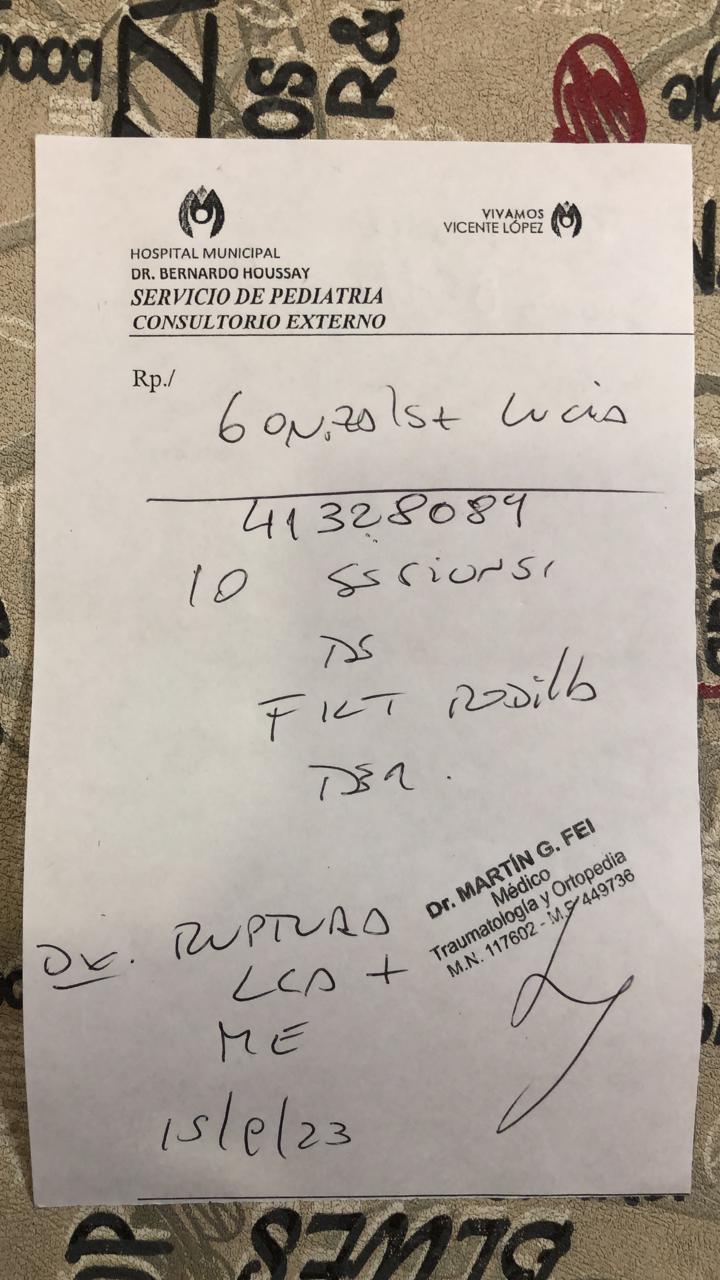 VIVAMOS
VICENTE LÓPEZ
HOSPITAL MUNICIPAL
DR. BERNARDO HOUSSAY
SERVICIO DE PEDIATRIA
CONSULTORIO EXTERNO
Rp./
GONZALEZ LUCIA
41328089
10 SESIONES
DE
FKT RODILLA
DER.
Dr. MARTÍN G. FEI
Médico
Traumatología y Ortopedia
M.N. 117602 - M.P. 449736
DX. RUPTURA
LCA +
ME
15/8/23